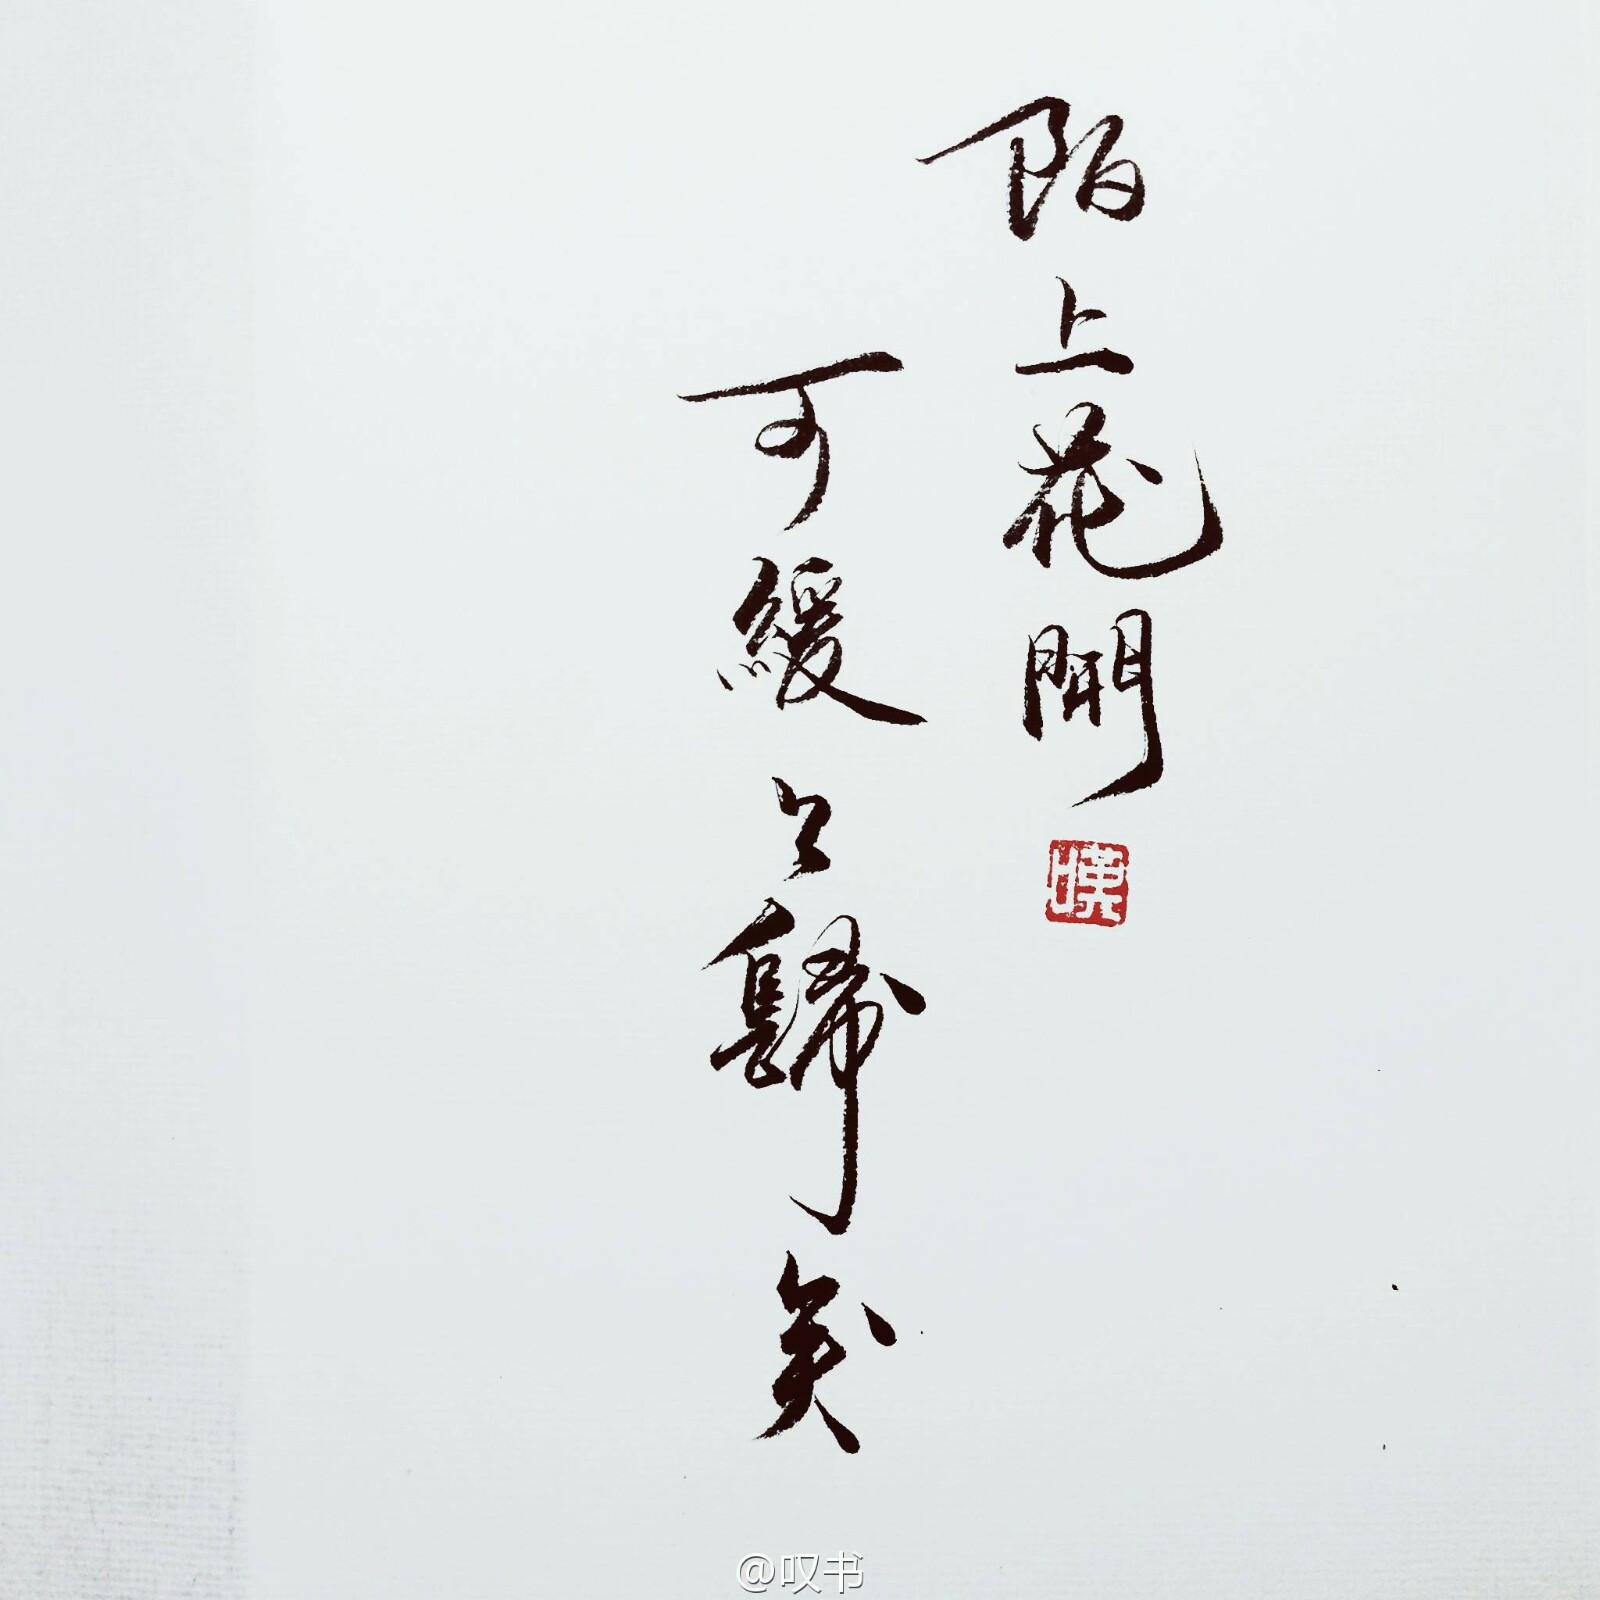 陌上花開
可緩緩歸矣
嘆
@叹书